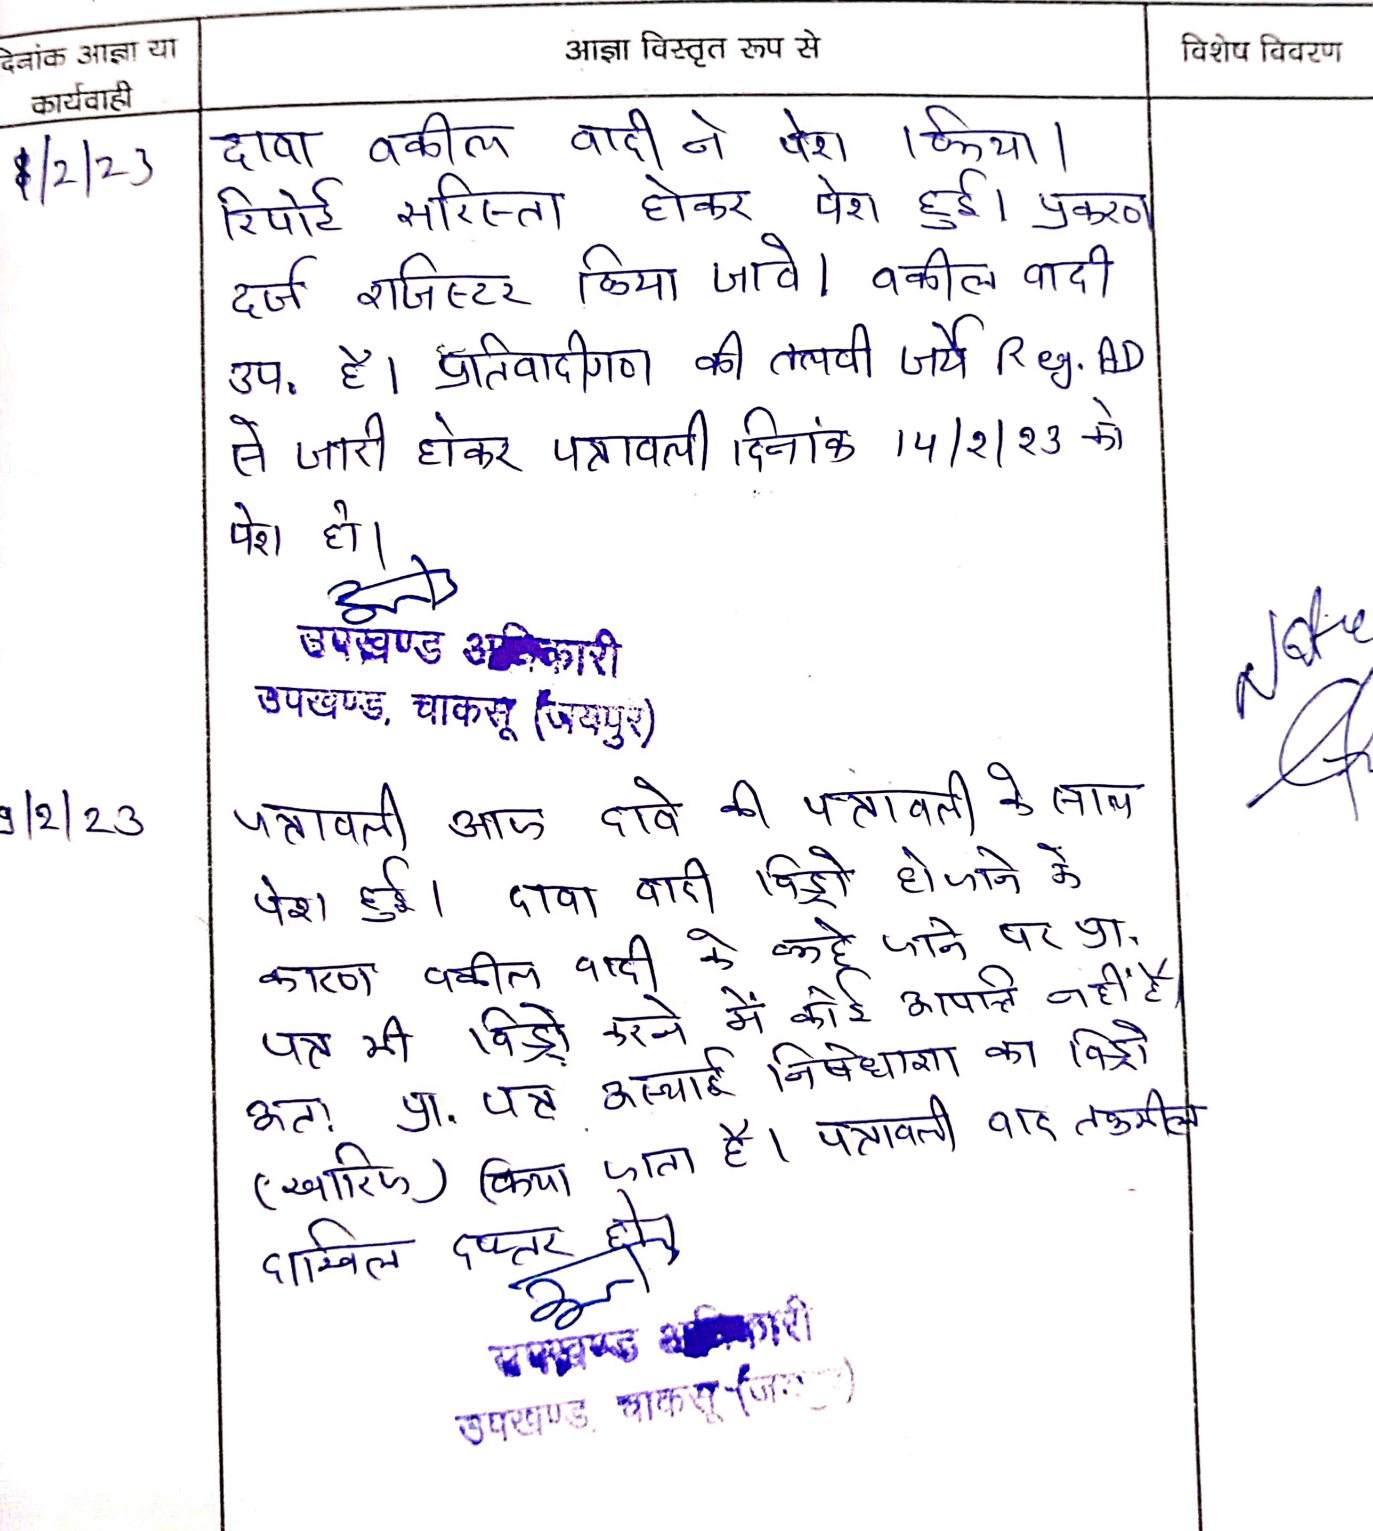 दिनांक आज्ञा या
कार्यवाही
आज्ञा विस्तृत रूप से
विशेष विवरण
8/2/23
दावा वकील वादी ने पेश किया।
रिपोर्ट सरिस्ता होकर पेश हुई। प्रकरण
दर्ज राजिस्टर किया जावे। वकील वादी
उप. है। प्रतिवादीगण की तलवी जर्ये Reg. AD
से जारी होकर पत्रावली दिनांक 14/2/23 को
पेश हो।
उपखण्ड अधिकारी
उपखण्ड, चाकसू (जयपुर)
9/2/23
पत्रावली आज दावे की पत्रावली के साथ
पेश हुई। दावा वादी विड्रो हो जाने के
कारण वकील वादी के कहे जाने पर प्रा.
पत्र भी विड्रो करने में कोई आपत्ति नहीं है।
अतः प्रा. पत्र अस्थाई निषेधाज्ञा का विड्रो
(खारिज) किया जाता है। पत्रावली वाद तकमील
दाखिल दफ्तर होवे
उपखण्ड अधिकारी
उपखण्ड, चाकसू (जयपुर)